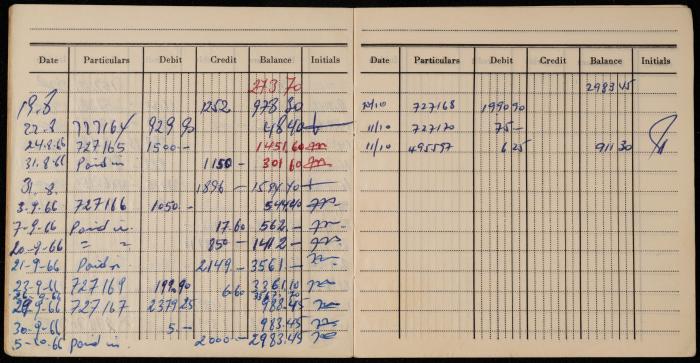 Date Particulars Debit Credit Balance Initials
273.70
19.8 1252 978.30
22.8 727164 929.90 48.40
24.8.66 727165 1500- 1451.60
31.8.66 Paid in 1150- 301.60
31.8. 1896- 1594.40
3.9.66 727166 1050- 544.40
7-9-66 Paid in. 17.60 562.-
20-9-66 " " 850- 1412-
21-9-66 Paid in 2149- 3561.-
23-9-66 727169 199.90 3361.10
6.60 3367.70
29-9-66 727167 2379.25 988.45
30-9-66 5- 983.45
5-10-66 paid in. 2000- 2983.45
Date Particulars Debit Credit Balance Initials
2983.45
10/10 727168 1990.90
11/10 727170 75-
11/10 495597 6.25 911.30